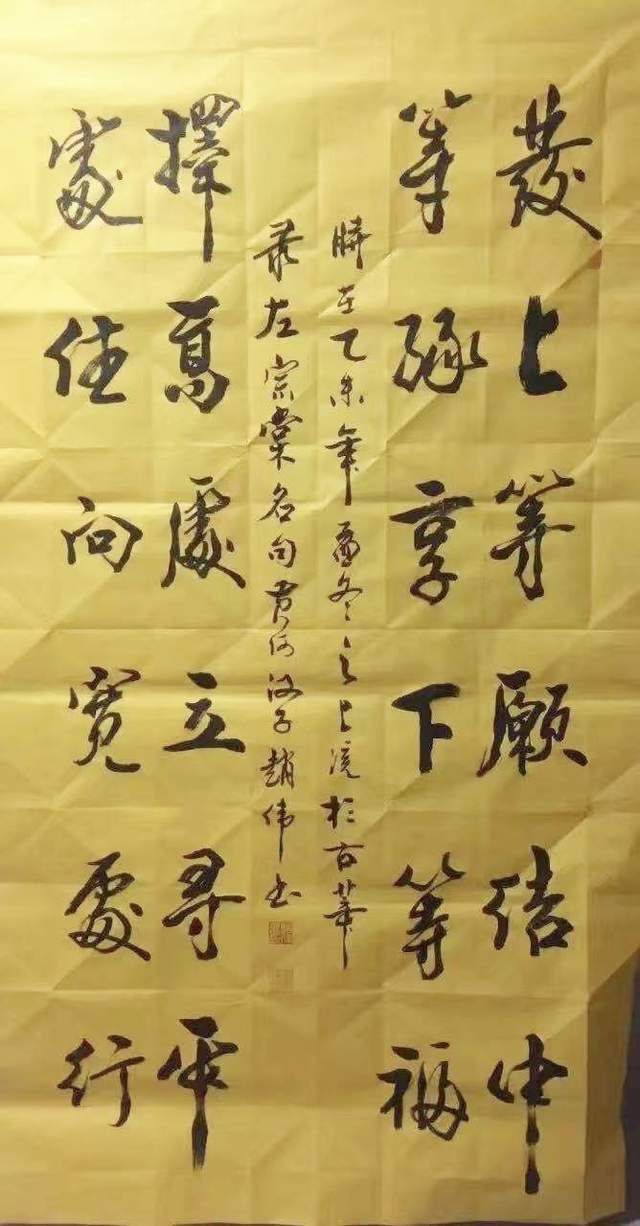 發上等願結中
等緣享下等福
時在乙未年冬之上浣於古華
录左宗棠名句黄河汉子趙伟书
擇高處立尋平
處住向寬處行